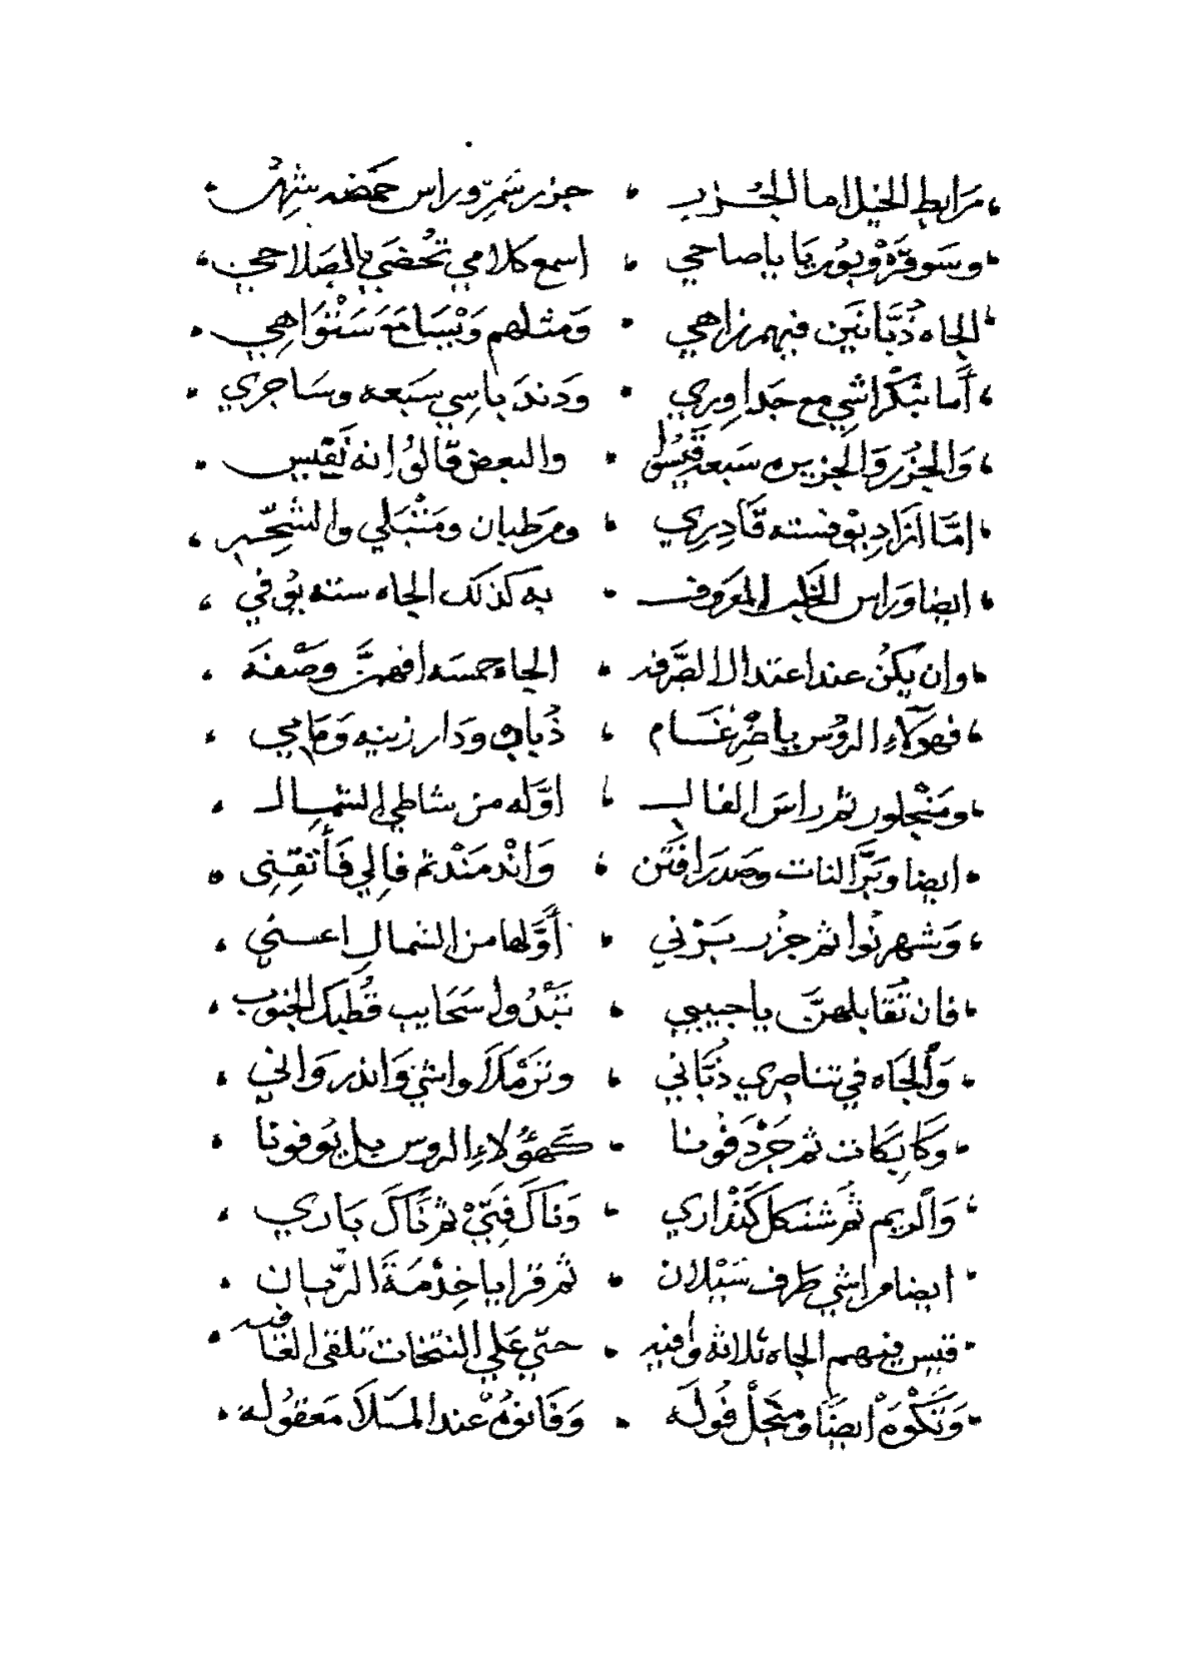 مَرَابط الخيل اما الجُزر جزر سَمِرّ وراس حمَضه شِهرُ
وسَوقَرَه وْبوُر يَا ياصاحي اسمع كلامي تُحْضَي بالصَلاحي
الجاه ذُبَّانَين فيهم زاهي وَمثلهم وَيْسَا مَعَ سَنْتوَاهِي
أمَا بَنْكرْاشِي مع جَداوِري وَدَندَ باسِي سَبعه وسَاجري
وَالجُزَر وَالجزيره سَبعه قِيسُوا والبعض قالوُا انه نَقيس
امَّا ازَادِبوْ فسته قَادِرِي ومرطبان ومَتْبَلي والشحّير
ايضا وَراس الخَلب المعَروف به كذلك الجاه سته بوُفي
وان يكنُ عند اعتدال الصَّرفه الجاه خمسَه افهمنَّ وصَفْنَه
فهوَلآءِ الروُس ياضِرْغَام ذُياب ودَار زينه وَمَامي
ومَنْجلور ثم راسَ الفال اوَّله من شاطي الشمِال
ايضا وبَرَّ النات وصَدرَ افَتَن وَانْد مَنْد ثم فالِي فَأتقِنِى
وَشهر نُوا ثم جزُر بَرْني أوَّلها من الشمالِ اعسني
فان تُقَابلهنَّ ياحبيبي تَبْدُوا سَحَايب قُطبك الجنوُب
وَالجَاه في تناصري ذُبَّاني ونَزمَلاَ واشي وَانذر وَاني
وَكَابِكَات ثم جَرْدَفُونا كَهؤُلاءِ الروس بل يوَفونا
وَالريم ثُم شنكل كَنْدْاري وَناكَ فَنِيّ ثم نَاكَ بَاري
ايضا مراشي طَرف سَيْلان ثم قرايا خِدْمَةَ الرّبان
قيس فيهم الجاه ثلاثه وَافيه حتّي عَلي النتخات تلقى العَافيه
وَتَكْوَهْ ايضًا ومنَجلْ فُولَه وَفَانومُ عند المَلاَ مَعقوُله